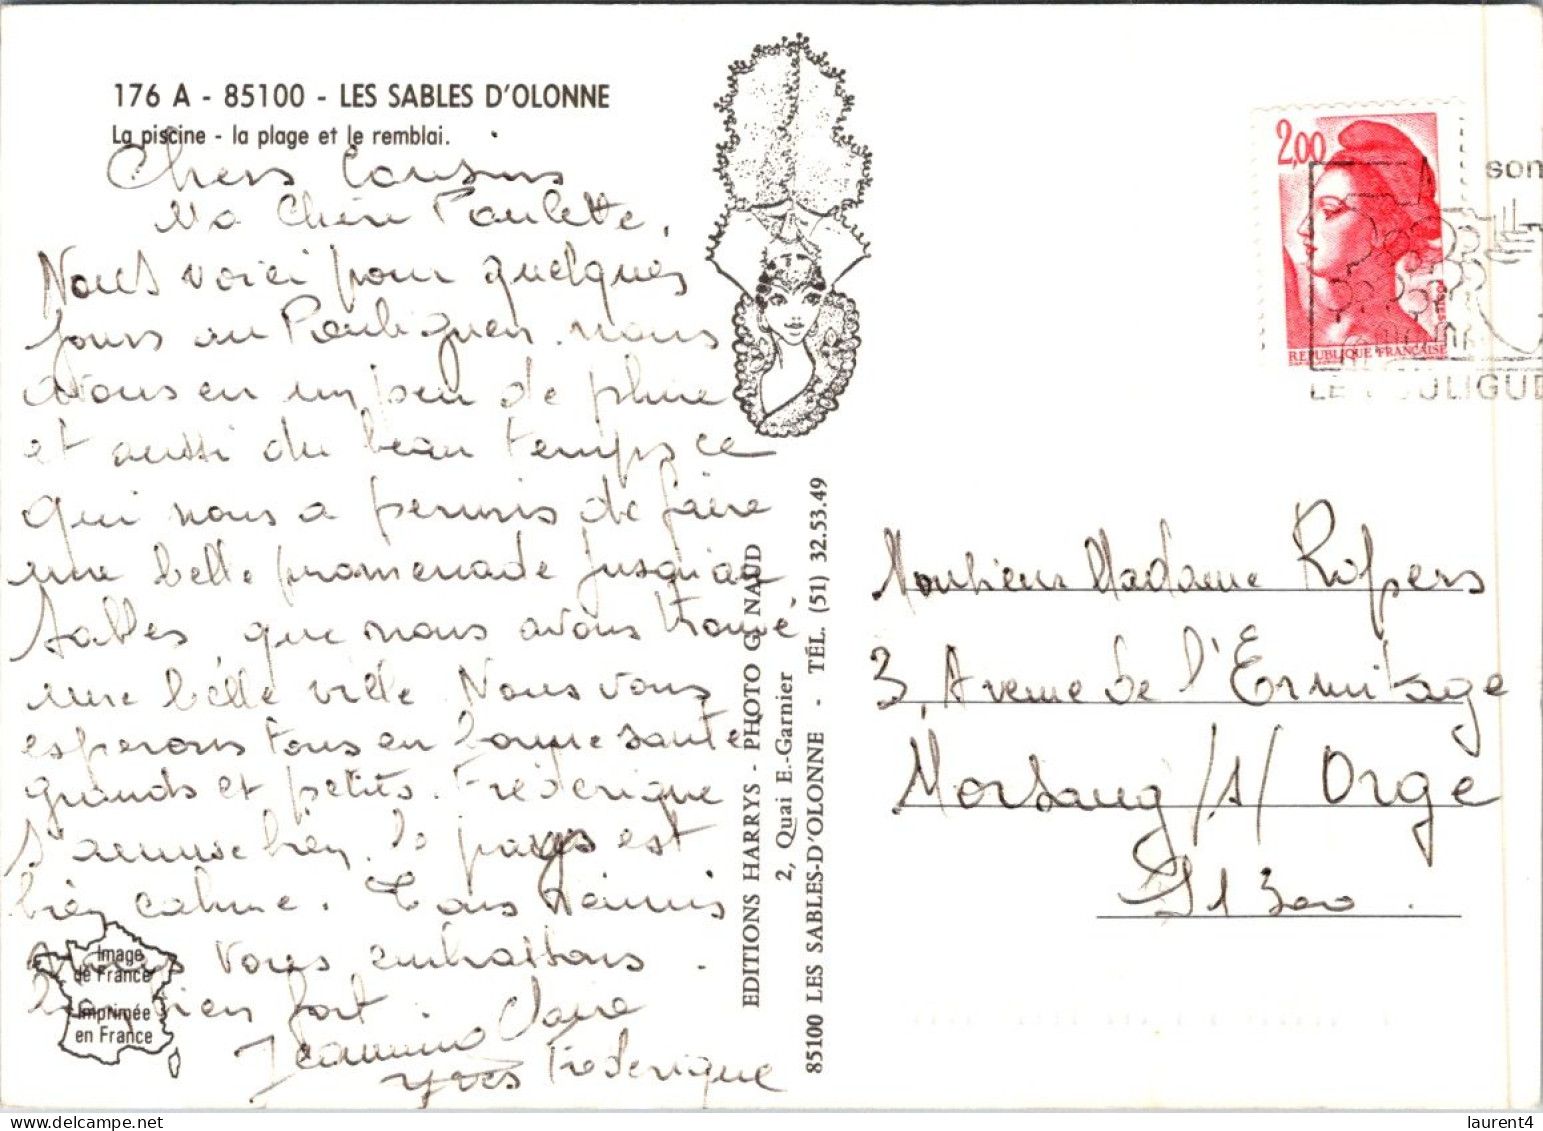 176 A - 85100 - LES SABLES D'OLONNE
La piscine - la plage et le remblai.
Chers Cousins
Ma Chère Paulette,
Nous voici pour quelques
jours au Pouliguen. nous
avons eu un peu de pluie
et aussi du beau temps ce
qui nous a permis de faire
une belle promenade jusqu'au
Sables que nous avons trouvé
une belle ville. Nous vous
esperons tous en bonne santé
grands et petits. Frédérique
s'amuse bien. le pays est
bien calme. Tous réunis
nous vous embrassons.
bien fort.
Jeannine Claire
Yves Frédérique
Image
de France
Imprimée
en France
EDITIONS HARRYS - PHOTO G. NAUD
2, Quai E.-Garnier
85100 LES SABLES-D'OLONNE - TÉL. (51) 32.53.49
2,00
POSTES
REPUBLIQUE FRANÇAISE
son
LE POULIGUE
Monsieur Madame
3 Avenue de l'Ermitage
Morsang /s/ Orge
91300.
laurent4